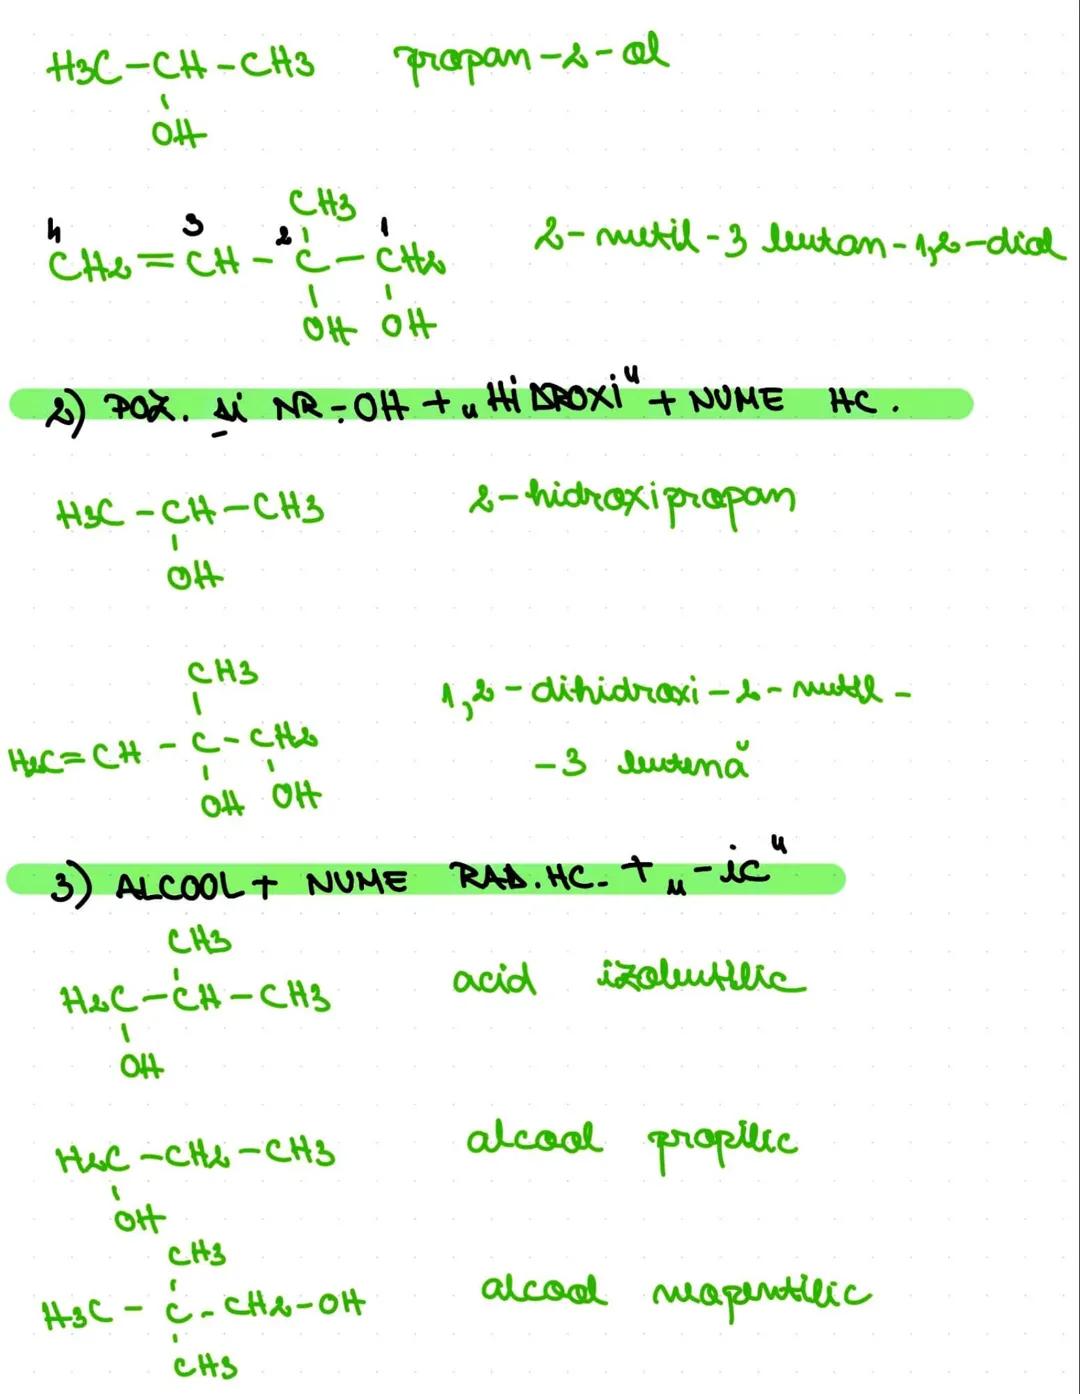 H3C-CH-CH3 propan-2-ol
OH
CH3
4 3 2 1
CH2=CH-C-CH2 2-metil-3 butan-1,2-diol
OH OH
2) POZ. ȘI NR-OH + „HiDROXi" + NUME HC.
H3C-CH-CH3 2-hidroxipropan
OH
CH3
H2C=CH-C-CH2 1,2-dihidroxi-2-metil-
OH OH -3 butenă
3) ALCOOL + NUME RAD.HC. + „-ic"
CH3
H2C-CH-CH3 acid izobutilic
OH
H2C-CH2-CH3 alcool propilic
OH
CH3
H3C-C-CH2-OH alcool neopentilic
CH3